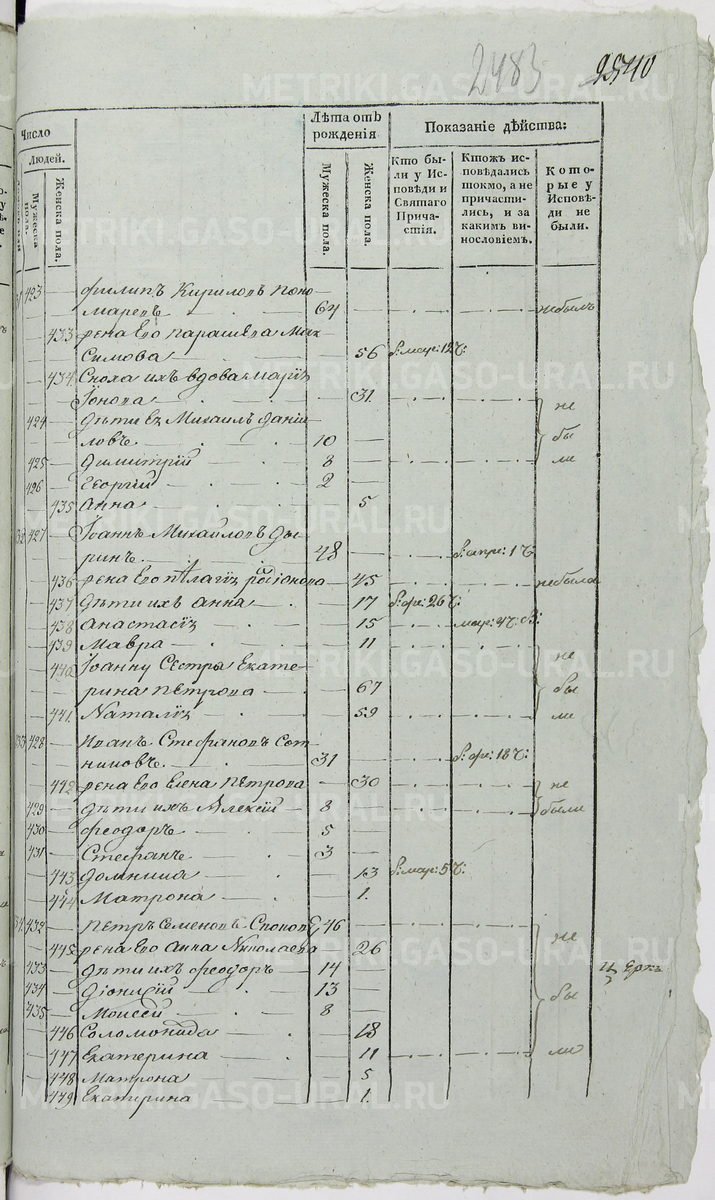 2483 2540
Число
Людей.
Мужеска пола.
Женска пола.
Лѣта отъ рожденія
Мужеска пола.
Женска пола.
Показаніе дѣйства:
Кто бы-
ли у Ис-
повѣди и
Святаго
Прича-
стія.
Ктожъ ис-
повѣдались
токмо, а не
причасти-
лись, и за
какимъ ви-
нословіемъ.
Кото-
рые у
Исповѣ-
ди не
были.
423 Филипъ Кириловъ Поно-
маревъ 64 небылъ
433 жена Его Парашева Мак
симова 56 мар: 12 ч:
434 Сноха ихъ вдова Марія
Іонова 31 не
424 дѣти Ея Михаилъ Дани-
ловъ 10 бы
425 Димитрій 8 ли
426 Георгій 2
435 Анна 5
427 Іоаннъ Михайловъ Ды-
ринъ 48 апре: 1 ч:
436 жена Его Пелагія 45 небыла
437 дѣти ихъ Анна 17 фе: 26 ч:
438 Анастасія 15 мар: 4 ч:
439 Мавра 11
440 Іоанну Сестра Екате-
рина Петрова 67 не бы
441 Наталія 59 ли
428 Иванъ Стефановъ Сот-
никовъ 31 фе: 18 ч:
442 жена Его Елена Петрова 30 не
429 дѣти ихъ Алексій 8 были
430 Феодоръ 5
431 Стефанъ 3
443 Домника 13 мар: 5 ч:
444 Матрона 1
432 Петръ Семеновъ 46
445 жена Его Анна Николаева 26 не
433 дѣти ихъ Феодоръ 14
434 Діонисій 13 бы
435 Моисей 8
446 Соломонида 18
447 Екатерина 11 ли
448 Матрона 5
449 Екатирина 1
METRIKI.GASO-URAL.RU